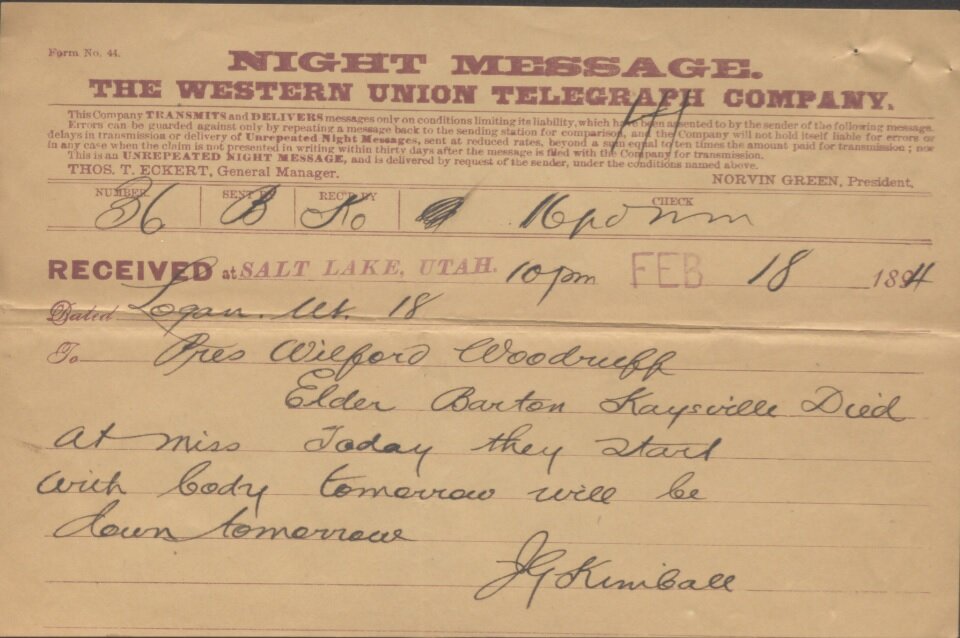 Form No. 44.
NIGHT MESSAGE.
THE WESTERN UNION TELEGRAPH COMPANY.
This Company TRANSMITS and DELIVERS messages only on conditions limiting its liability, which have been assented to by the sender of the following message.
Errors can be guarded against only by repeating a message back to the sending station for comparison, and the Company will not hold itself liable for errors or
delays in transmission or delivery of Unrepeated Night Messages, sent at reduced rates, beyond a sum equal to ten times the amount paid for transmission; nor
in any case when the claim is not presented in writing within thirty days after the message is filed with the Company for transmission.
This is an UNREPEATED NIGHT MESSAGE, and is delivered by request of the sender, under the conditions named above.
THOS. T. ECKERT, General Manager. NORVIN GREEN, President.
NUMBER SENT BY REC'D BY CHECK
36 B Ko 16 pd Nm
RECEIVED at SALT LAKE, UTAH. 10 pm FEB 18 1894
Dated Logan. Ut. 18
To Pres Wilford Woodruff
Elder Barton Kaysville Died
at miss Today they start
with body tomorrow will be
down tomorrow
JG Kimball